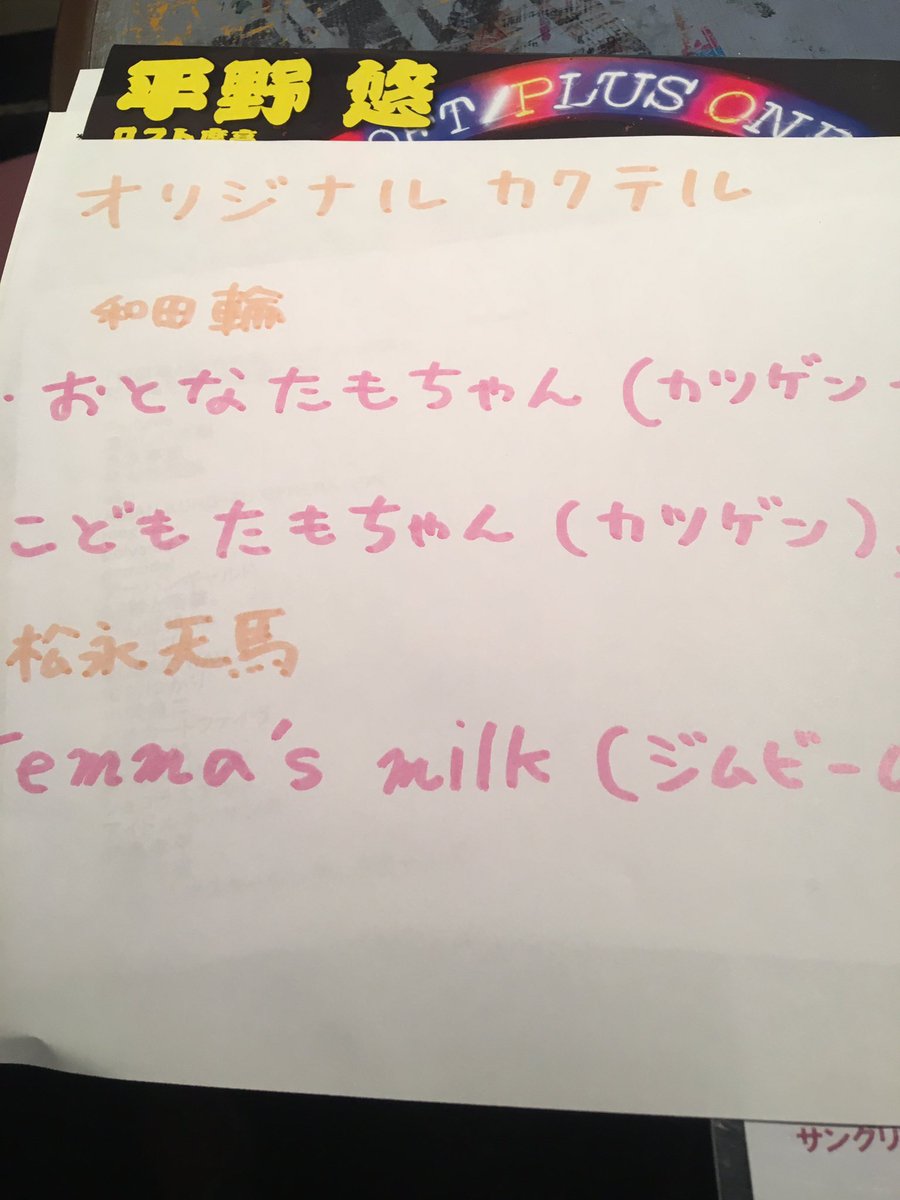 平野 悠
OFT/PLUS ONE
オリジナル カクテル
和田 輪
・おとなたもちゃん (カツゲン
こどもたもちゃん (カツゲン)
松永天馬
Temma's milk (ジムビーム
サングリ